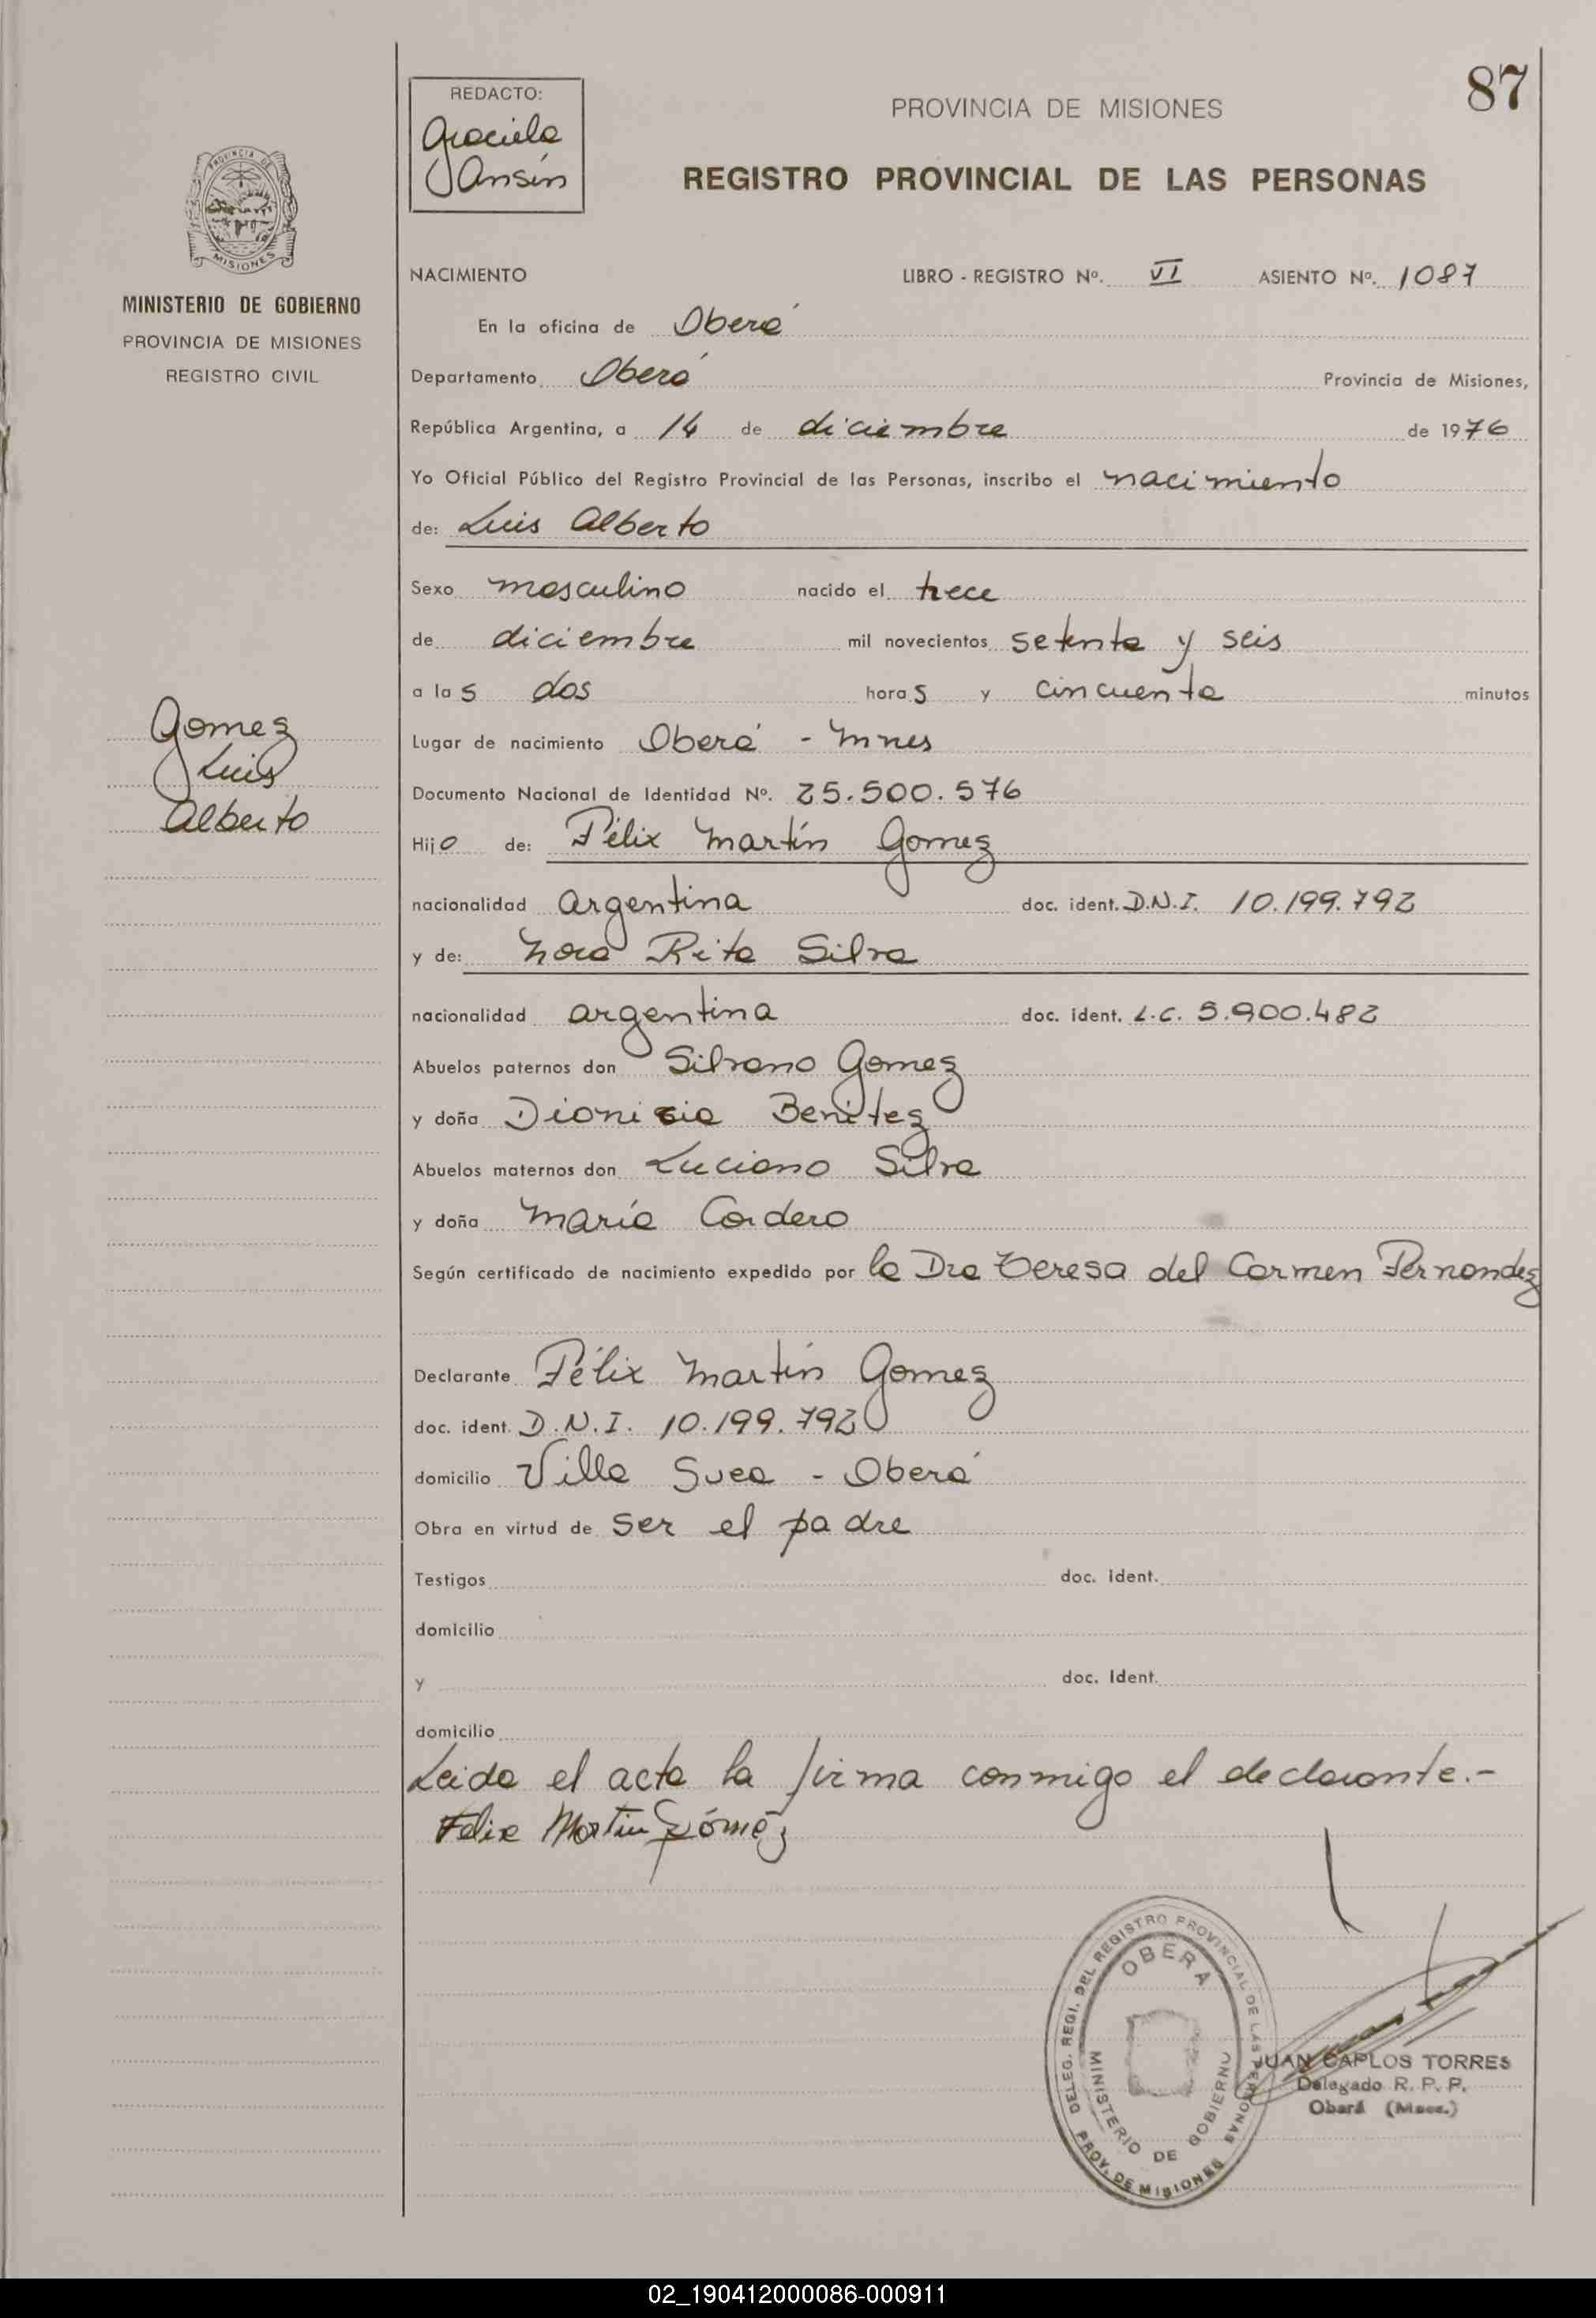 87
REDACTO:
Graciela
Jansin
PROVINCIA DE MISIONES
REGISTRO PROVINCIAL DE LAS PERSONAS
PROVINCIA DE
MISIONES
MINISTERIO DE GOBIERNO
PROVINCIA DE MISIONES
REGISTRO CIVIL
NACIMIENTO LIBRO - REGISTRO Nº. VI ASIENTO Nº. 1087
En la oficina de Oberá
Departamento Oberá Provincia de Misiones,
República Argentina, a 14 de diciembre de 1976
Yo Oficial Público del Registro Provincial de las Personas, inscribo el nacimiento
de: Luis Alberto
Sexo masculino nacido el trece
de diciembre mil novecientos setenta y seis
a las dos horas y cincuenta minutos
Gomez
Luis
Alberto
Lugar de nacimiento Oberá - Mnes
Documento Nacional de Identidad Nº. 25.500.576
Hijo de: Félix Martín Gomez
nacionalidad argentina doc. ident. D.N.I. 10.199.792
y de: Nora Rita Silva
nacionalidad argentina doc. ident. L.C. 5.900.482
Abuelos paternos don Silvano Gomez
y doña Dionisia Benitez
Abuelos maternos don Luciano Silva
y doña María Cordero
Según certificado de nacimiento expedido por la Dra Teresa del Carmen Fernandez
Declarante Félix Martín Gomez
doc. ident. D.N.I. 10.199.792
domicilio Villa Svea - Oberá
Obra en virtud de ser el padre
Testigos doc. ident.
domicilio
y doc. Ident.
domicilio
Leida el acta la firma conmigo el declarante.-
Felix Martin Gómez
DELEG. REGI. DEL REGISTRO PROVINCIAL DE LAS PERSONAS
OBERA
MINISTERIO DE GOBIERNO
PROV. DE MISIONES
JUAN CARLOS TORRES
Delegado R. P. P.
Oberá (Mnes.)
02_190412000086-000911